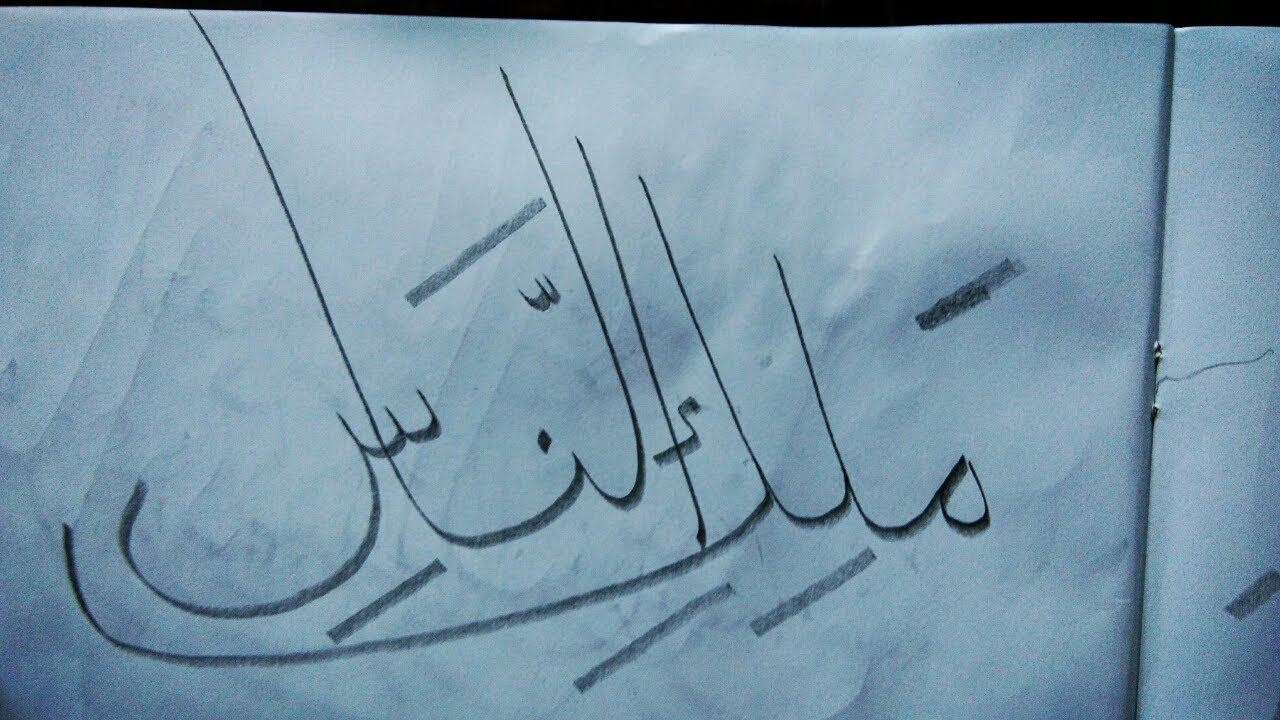 مَلِكِ النَّاسِ